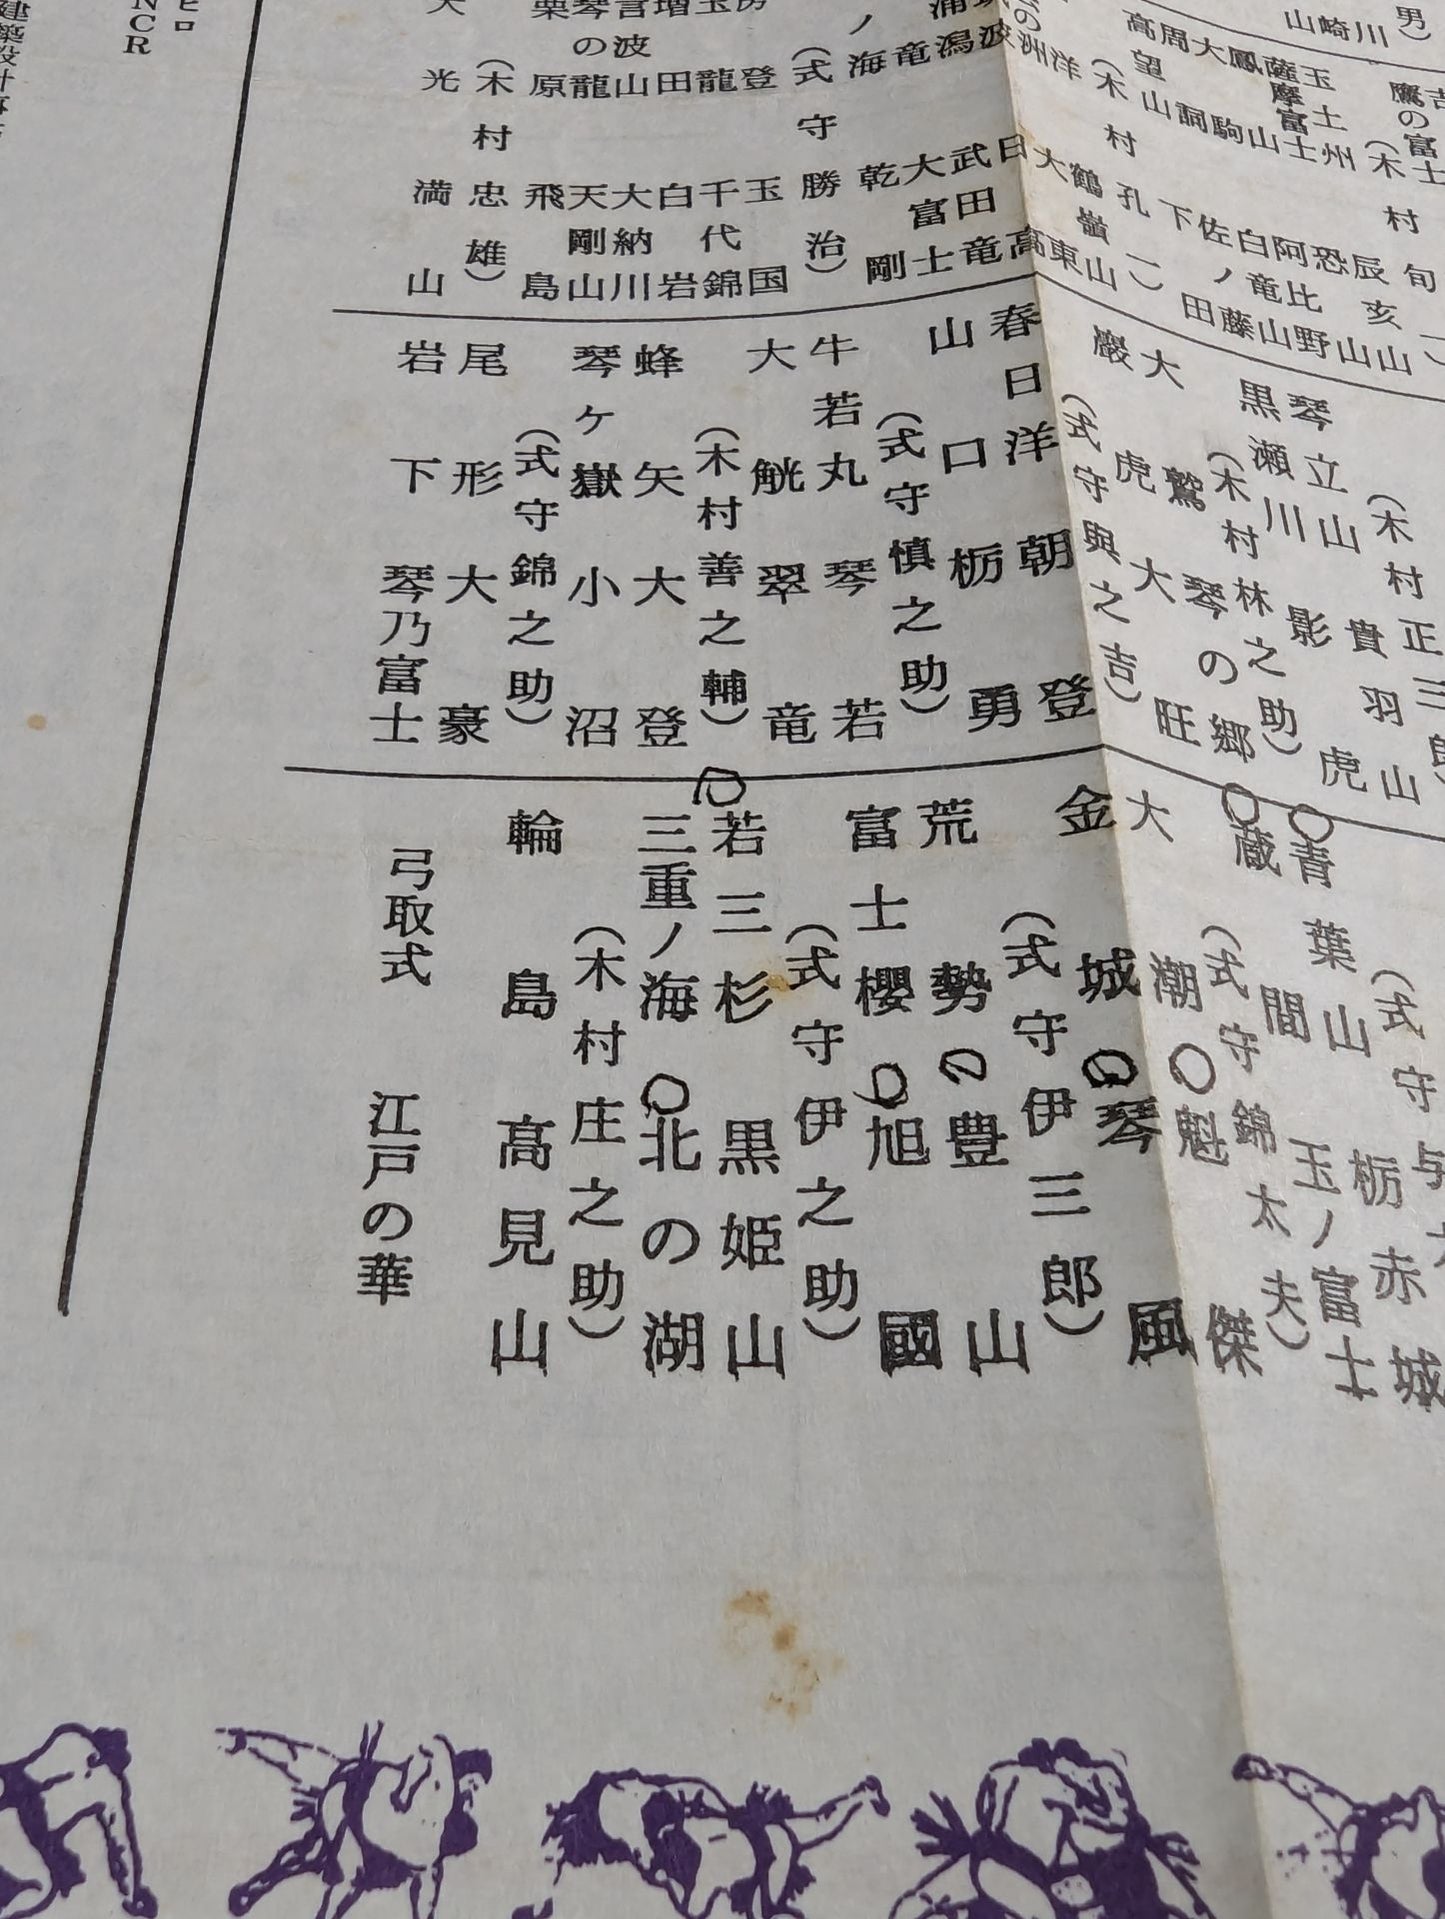 男）
川
崎
山
鷹の富士
（木村旬一）
玉土州　辰亥山
薩摩富士　恐山
鳳山　阿比野
大駒　白竜山
周詞　佐ノ藤
高望山　下田
（木村孔一）
鶴嶺山
洋　大東
の洲
波　日高
潟　武田竜
竜　大富士
ノ海　乾剛
（式守勝治）
登　玉国
玉龍　千代錦
増田　白岩
波山　大納川
琴の龍　天剛山
栗原　飛島
（木村忠雄）
大光　満山
（木村正三郎）
琴立山　貴羽山
黒瀬川　影虎
（木村林之助）
大鷲　琴の郷
巌虎　大旺
（式守與之吉）
春日洋　朝登
山口　栃勇
（式守慎之助）
牛若丸　琴若
大觥　翠竜
（木村善之輔）
蜂矢　大登
琴ヶ嶽　小沼
（式守錦之助）
尾形　大豪
岩下　琴乃富士
（式守与
青葉山　栃赤城
蔵間　玉ノ富士
（式守錦太夫）
大潮　魁傑
金城　琴風
（式守伊三郎）
荒勢　豊山
富士櫻　旭國
（式守伊之助）
若三杉　黒姫山
三重ノ海　北の湖
（木村庄之助）
輪島　高見山
弓取式　江戸の華
ヒロ
NCR
建築設計事